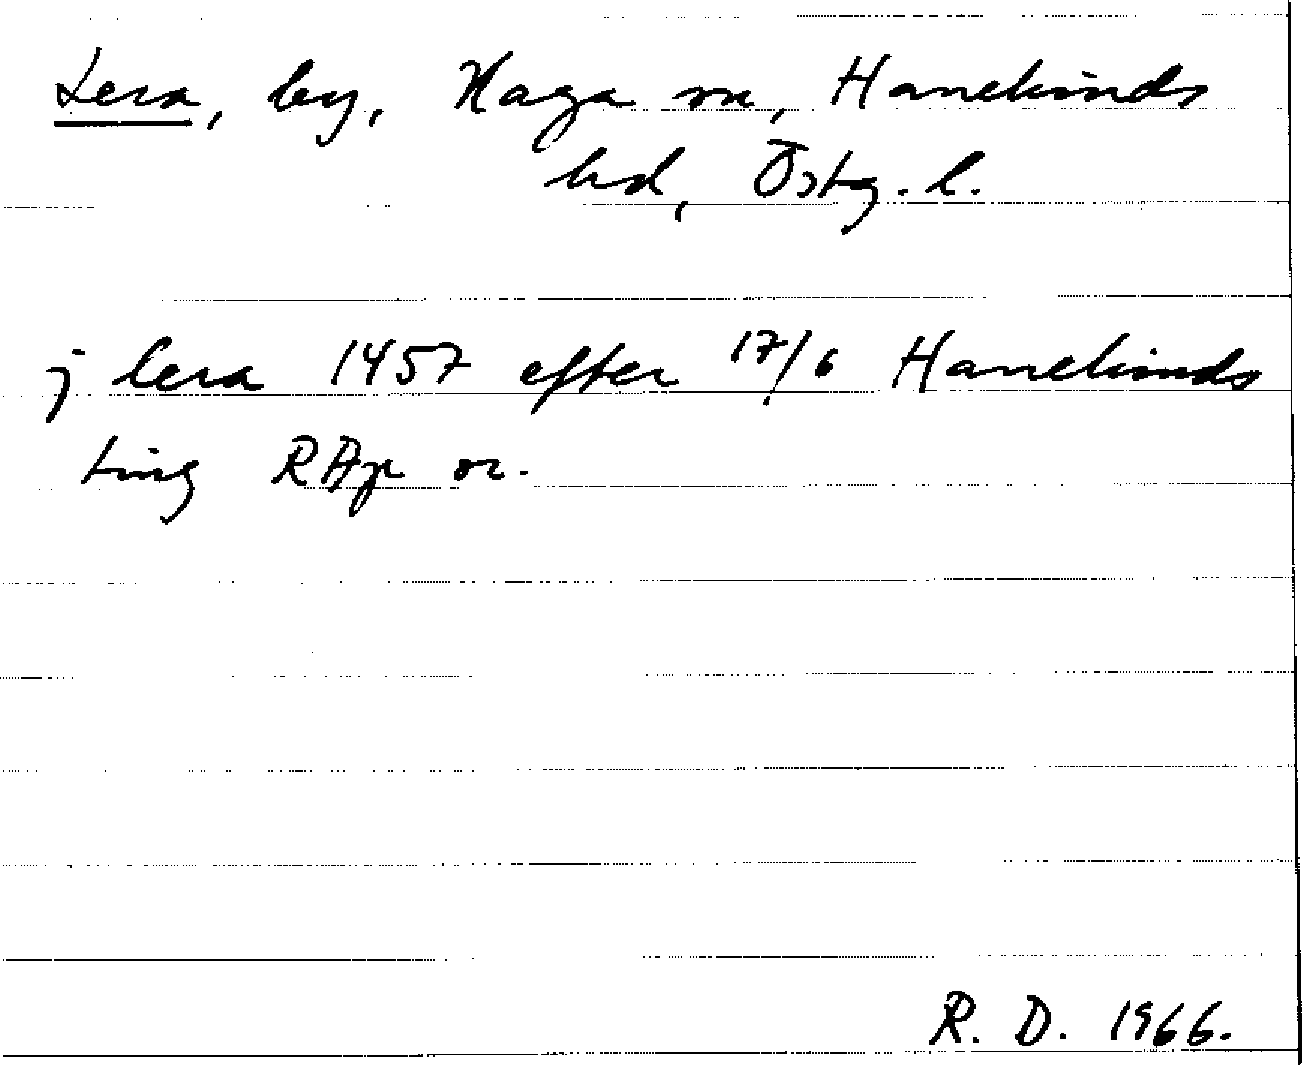 Lera, by, Kaga sn, Hanekinds
hd, Östg. l.
j lera 1457 efter 17/6 Hanekinds
ting RAp or.
R. D. 1966.